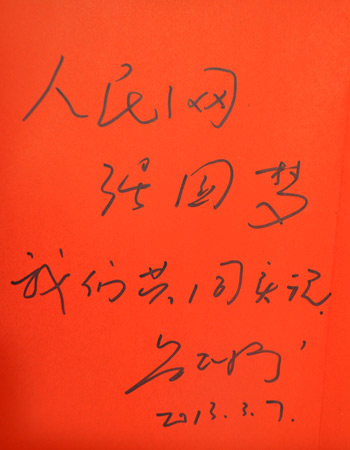 人民网
强国梦
我们共同实现
2013.3.7.